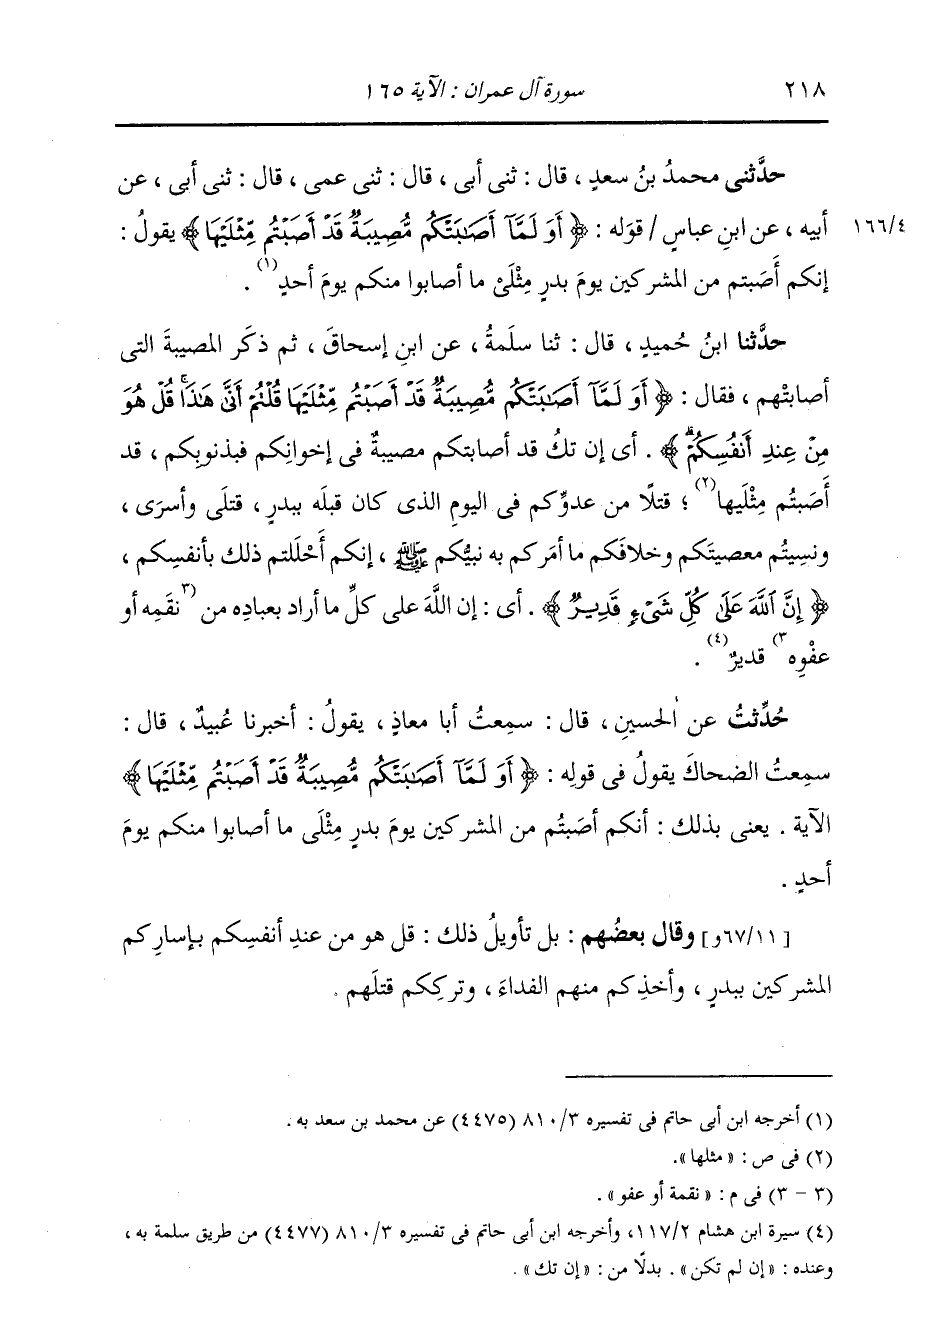 ٢١٨
سورة آل عمران : الآية ١٦٥
حدَّثني محمدُ بنُ سعدٍ ، قال : ثنى أبى ، قال : ثنى عمى ، قال : ثنى أبى ، عن
١٦٦/٤
أبيه ، عن ابنِ عباسٍ / قوَله : ﴿ أَوَ لَمَّآ أَصَٰبَتۡكُم مُّصِيبَةٌ قَدۡ أَصَبۡتُم مِّثۡلَيۡهَا ﴾ يقولُ :
إنكم أَصَبتم من المشركين يومَ بدرٍ مِثْلَىْ ما أصابوا منكم يومَ أحدٍ(١) .
حدَّثنا ابنُ حُميدٍ ، قال : ثنا سلَمةُ ، عن ابنِ إسحاقَ ، ثم ذكَر المصيبةَ التى
أصابتْهم ، فقال : ﴿ أَوَ لَمَّآ أَصَٰبَتۡكُم مُّصِيبَةٌ قَدۡ أَصَبۡتُم مِّثۡلَيۡهَا قُلۡتُمۡ أَنَّىٰ هَٰذَاۖ قُلۡ هُوَ
مِنۡ عِندِ أَنفُسِكُمۡۗ ﴾ . أى إن تكُ قد أصابتكم مصيبةٌ فى إخوانِكم فبذنوبِكم ، قد
أَصَبتُم مِثْلَيها(٢) ؛ قتلًا من عدوِّكم فى اليومِ الذى كان قبلَه ببدرٍ ، قتلَى وأسرَى ،
ونسِيتُم معصيتَكم وخلافَكم ما أمَركم به نبيُّكم ﷺ ، إنكم أَحْلَلتم ذلك بأنفسِكم ،
﴿ إِنَّ ٱللَّهَ عَلَىٰ كُلِّ شَىۡءٍ قَدِيرٌ ﴾ . أى : إن اللَّهَ على كلِّ ما أراد بعبادِه من (٣نقَمِه أو
عفْوِه٣) قديرٌ(٤) .
حُدِّثتُ عن الحسينِ ، قال : سمِعتُ أبا معاذٍ ، يقولُ : أخبرنا عُبيدٌ ، قال :
سمِعتُ الضحاكَ يقولُ فى قولِه : ﴿ أَوَ لَمَّآ أَصَٰبَتۡكُم مُّصِيبَةٌ قَدۡ أَصَبۡتُم مِّثۡلَيۡهَا ﴾
الآية . يعنى بذلك : أنكم أصَبتُم من المشركين يومَ بدرٍ مِثْلَى ما أصابوا منكم يومَ
أحدٍ .
[٦٧/١١و] وقال بعضُهم : بل تأويلُ ذلك : قل هو من عندِ أنفسِكم بإسارِكم
المشركين ببدرٍ ، وأخذِكم منهم الفداءَ ، وتركِكم قتلَهم .
(١) أخرجه ابن أبى حاتم فى تفسيره ٨١٠/٣ (٤٤٧٥) عن محمد بن سعد به .
(٢) فى ص : « مثلها ».
(٣ - ٣) فى م : « نقمة أو عفو » .
(٤) سيرة ابن هشام ١١٧/٢، وأخرجه ابن أبى حاتم فى تفسيره ٨١٠/٣ (٤٤٧٧) من طريق سلمة به ،
وعنده : « إن لم تكن » . بدلًا من : « إن تك » .